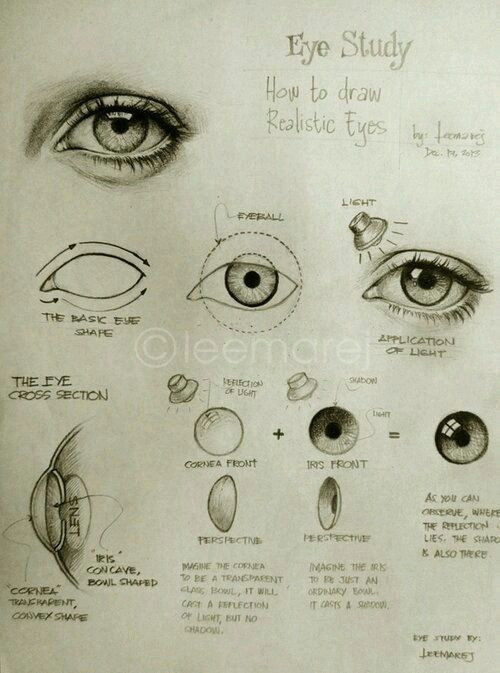 Eye Study
How to draw
Realistic Eyes
by: leemarej
Dec. 19, 2013
EYEBALL
LIGHT
THE BASIC EYE
SHAPE
APPLICATION
OF LIGHT
©leemarej
THE EYE
CROSS SECTION
REFLECTION
OF LIGHT
SHADOW
LIGHT
+
=
CORNEA FRONT
IRIS FRONT
LENS
PERSPECTIVE
PERSPECTIVE
"IRIS"
CONCAVE,
BOWL SHAPED
"CORNEA"
TRANSPARENT,
CONVEX SHAPE
IMAGINE THE CORNEA
TO BE A TRANSPARENT
GLASS BOWL, IT WILL
CAST A REFLECTION
OF LIGHT, BUT NO
SHADOW.
IMAGINE THE IRIS
TO BE JUST AN
ORDINARY BOWL.
IT CASTS A SHADOW.
AS YOU CAN
OBSERVE, WHERE
THE REFLECTION
LIES, THE SHADO
IS ALSO THERE.
EYE STUDY BY:
LEEMAREJ